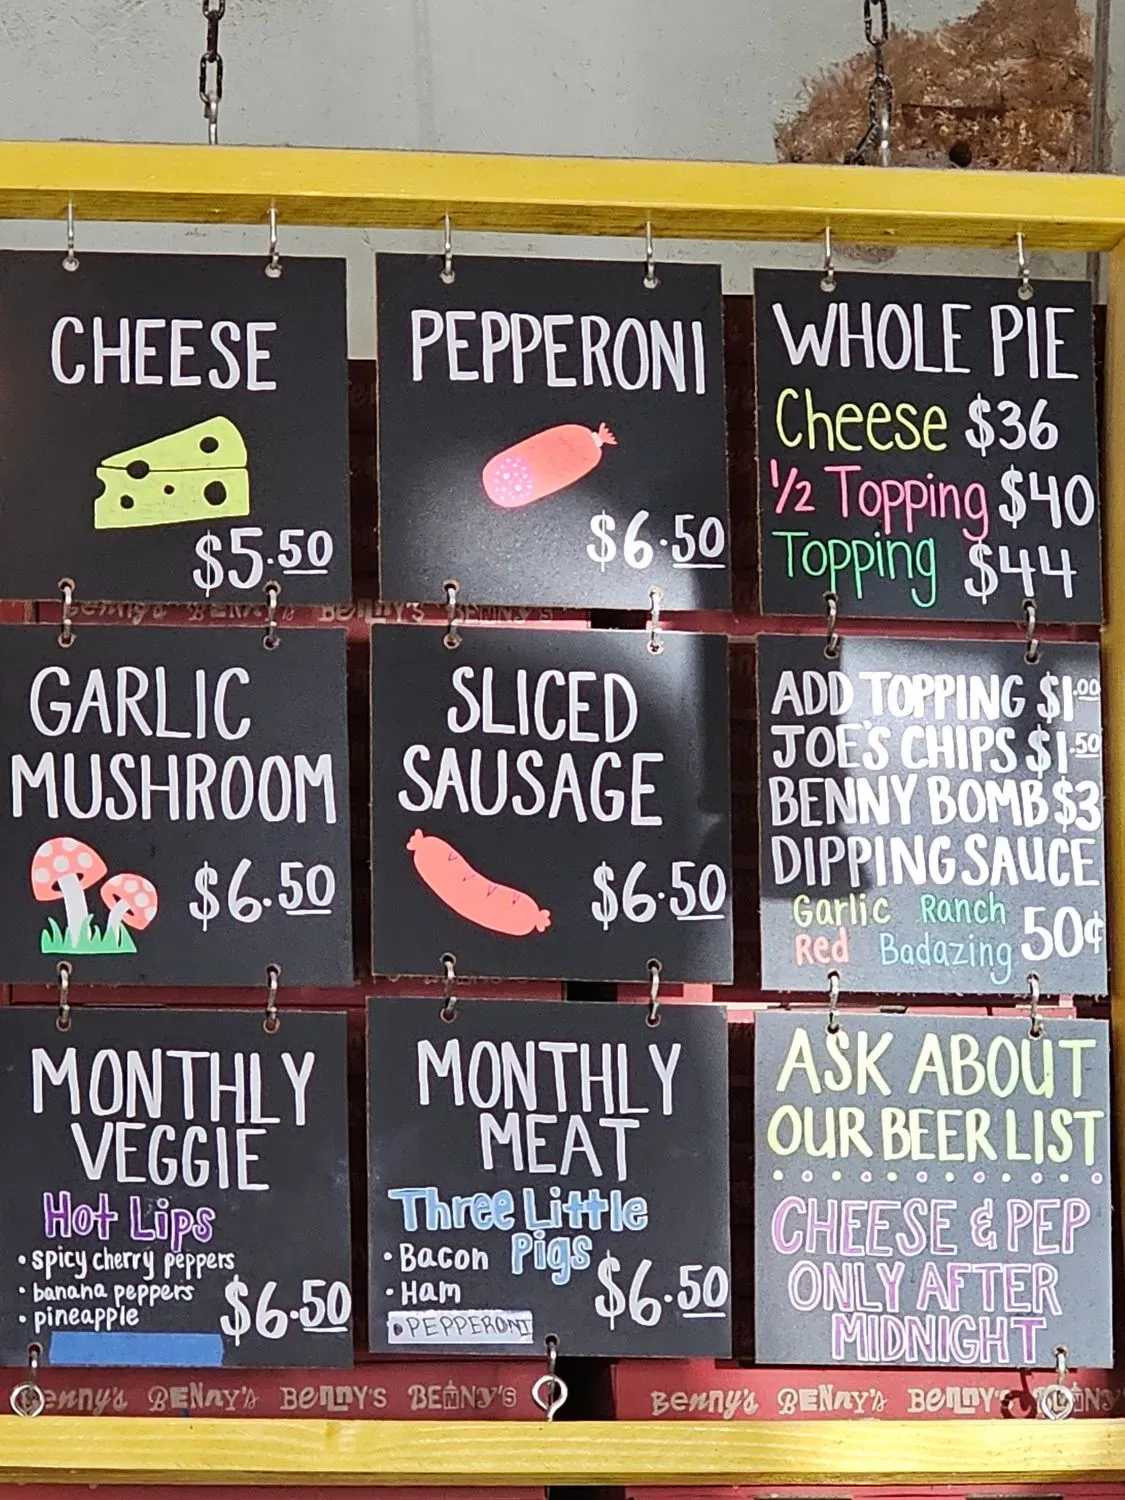 CHEESE
$5.50
PEPPERONI
$6.50
WHOLE PIE
Cheese $36
1/2 Topping $40
Topping $44
GARLIC
MUSHROOM
$6.50
SLICED
SAUSAGE
$6.50
ADD TOPPING $1.00
JOE'S CHIPS $1.50
BENNY BOMB $3
DIPPING SAUCE
Garlic Ranch
Red Badazing 50¢
MONTHLY
VEGGIE
Hot Lips
• spicy cherry peppers
• banana peppers
• pineapple
$6.50
MONTHLY
MEAT
Three Little
Pigs
• Bacon
• Ham
• PEPPERONI
$6.50
ASK ABOUT
OUR BEER LIST
CHEESE & PEP
ONLY AFTER
MIDNIGHT
Benny's BENNY'S BENNY'S BENNY'S
Benny's BENNY'S Benny's BENNY'S Benny's BENNY'S BENNY'S